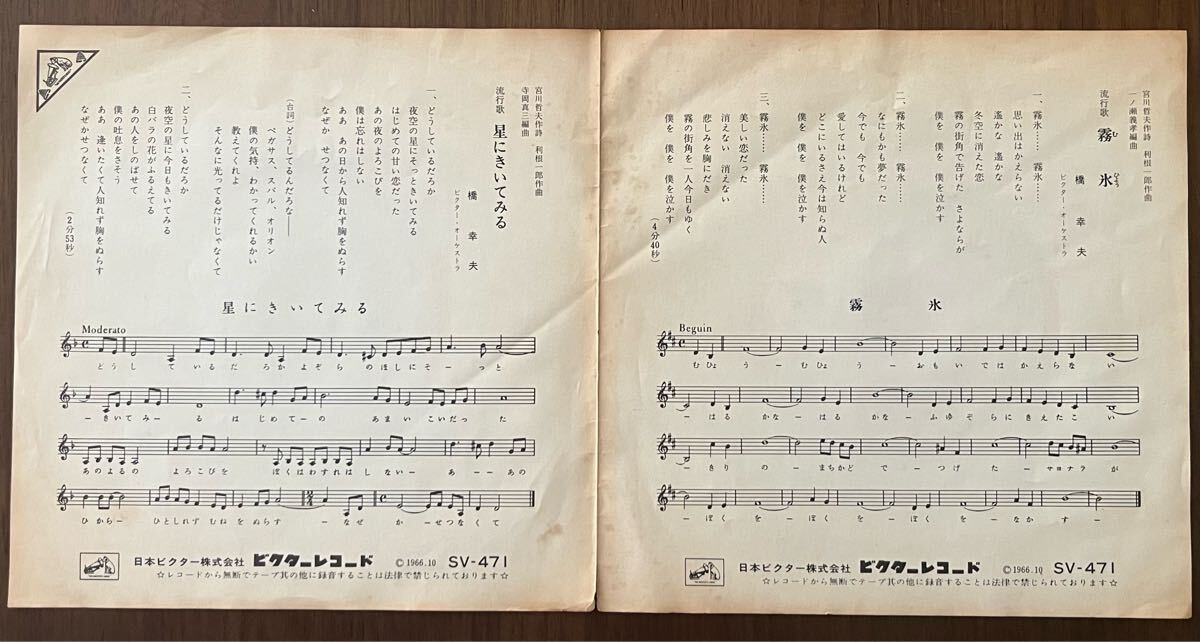 宮川哲夫作詩 利根一郎作曲
一ノ瀬義孝編曲
流行歌 霧氷
むひょう
橋 幸夫
ビクター・オーケストラ
一、霧氷…… 霧氷……
思い出はかえらない
遥かな 遥かな
冬空に消えた恋
霧の街角で告げた さよならが
僕を 僕を 僕を泣かす
二、霧氷…… 霧氷……
なにもかも夢だった
今でも 今でも
愛してはいるけれど
どこにいるさえ今は知らぬ人
僕を 僕を 僕を泣かす
三、霧氷…… 霧氷……
美しい恋だった
消えない 消えない
悲しみを胸にだき
霧の街角を一人今日もゆく
僕を 僕を 僕を泣かす
(4分40秒)
霧氷
Beguin
むひょ うー むひょ うー おもい では かえらな い
ーはる かなーはる かなーふゆぞら にきえたこ い
ーきりの ーまちかど でーつげ たーサヨナラが
ーぼく をーぼく をーぼく をーなか すー
日本ビクター株式会社 ビクターレコード Ⓒ1966.10 SV-471
☆レコードから無断でテープ其の他に録音することは法律で禁じられております☆
宮川哲夫作詩 利根一郎作曲
寺岡真三編曲
流行歌 星にきいてみる
橋 幸夫
ビクター・オーケストラ
一、どうしているだろか
夜空の星にそっときいてみる
はじめての甘い恋だった
あの夜のよろこびを
僕は忘れはしない
ああ あの日から人知れず胸をぬらす
なぜか せつなくて
(台詞)どうしてるんだろな――
ペガサス、スバル、オリオン
僕の気持、わかってくれるかい
教えてくれよ
そんなに光ってるだけじゃなくて
二、どうしているだろか
夜空の星に今日もきいてみる
白バラの花がふるえてる
あの人をしのばせて
僕の吐息をさそう
ああ 逢いたくて人知れず胸をぬらす
なぜかせつなくて
(2分53秒)
星にきいてみる
Moderato
どうし ているだ ろかよぞら のほしにそーっ と
ーきいてみー る はじめてーの あまいこいだっ た
あのよるの よろこびを ぼくはわすれは しないー あーあの
ひからー ひとしれず むねをぬらす ーなぜ かーせつなく て
日本ビクター株式会社 ビクターレコード Ⓒ1966.10 SV-471
☆レコードから無断でテープ其の他に録音することは法律で禁じられております☆